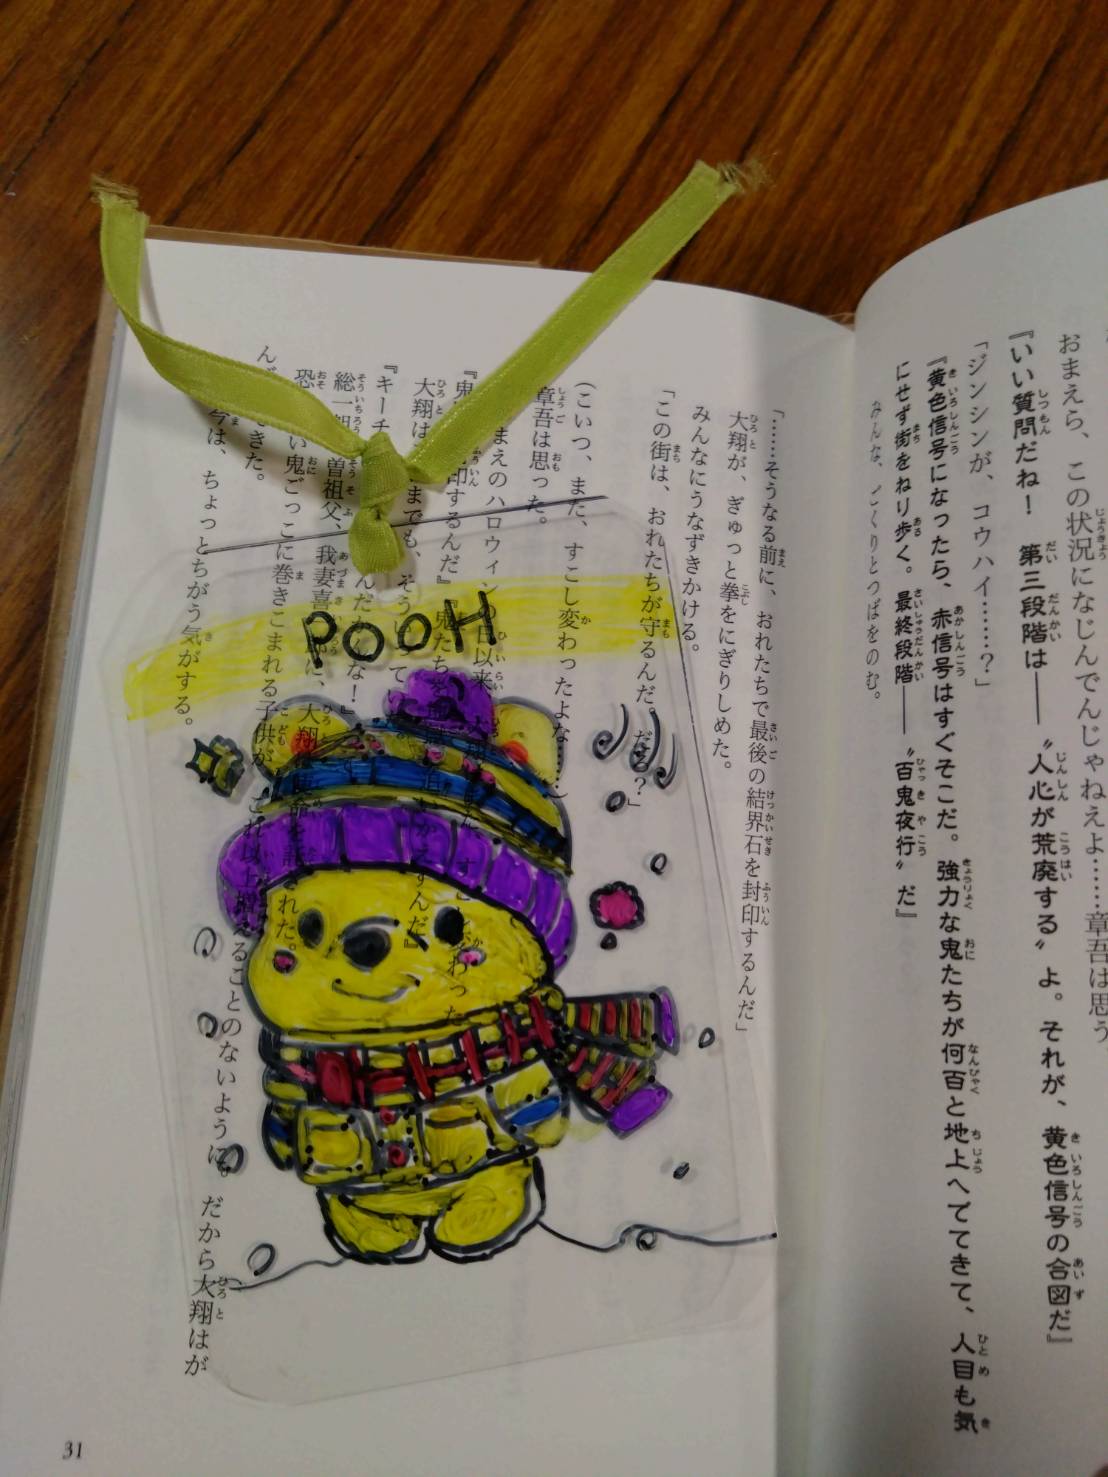 おまえら、この状況になじんでんじゃねえよ……章吾は思う
『いい質問だね！　第三段階は――〝人心が荒廃する〟よ。それが、黄色信号の合図だ』
「ジンシンが、コウハイ……？」
『黄色信号になったら、赤信号はすぐそこだ。強力な鬼たちが何百と地上へでてきて、人目も気
にせず街をねり歩く。最終段階――〝百鬼夜行〟だ』
みんな、ごくりとつばをのむ。
「……そうなる前に、おれたちで最後の結界石を封印するんだ」
大翔が、ぎゅっと拳をにぎりしめた。
みんなにうなずきかける。
「この街は、おれたちが守るんだ。だろ？」
（こいつ、また、すこし変わったよな……）
章吾は思った。
まえのハロウィンの日以来、
印するんだ』
大翔は までも、そう
『キーチ
総一郎 曽祖父、我妻喜 に、大翔
恐 い鬼ごっこに巻きこまれる子供が、これ以上増えることのないように。だから大翔はが
んできた。
今は、ちょっとちがう気がする。
POOH
31